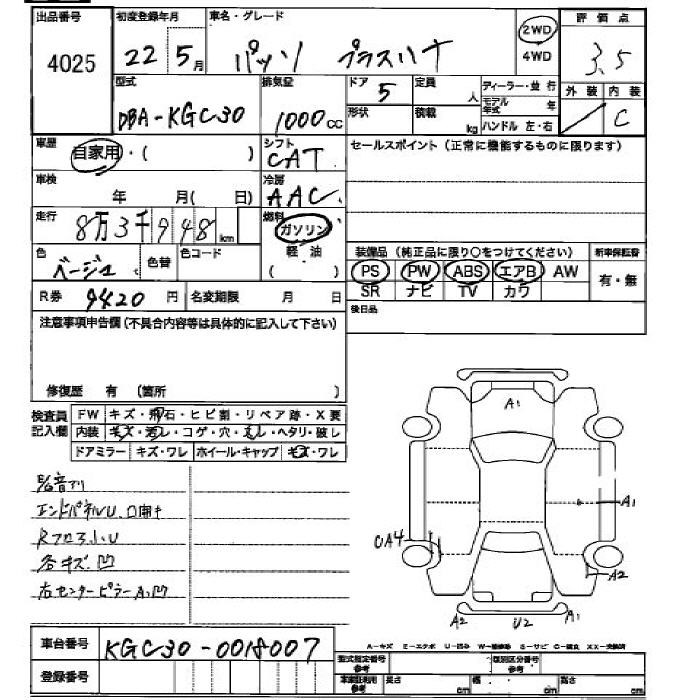 出品番号 初度登録年月 車名・グレード 2WD 評価点
4025 22 5月 パッソ プラスハナ 4WD 3.5
型式 排気量 ドア 5 定員 人 ディーラー・並行 外装 内装
DBA-KGC30 1000cc 形状 積載 kg モデル年式 年 C
ハンドル 左・右
車歴 自家用・( ) シフト CAT セールスポイント(正常に機能するものに限ります)
車検 年 月( 日) 冷房 AAC
走行 8万3千948km 燃料 ガソリン
軽・油
( )
色 ベージュ 色替 色コード
装備品(純正品に限り○をつけてください) 新車保証書
PS PW ABS エアB AW 有・無
SR ナビ TV カワ
R券 9420円 名変期限 月 日 後日品
注意事項申告欄(不具合内容等は具体的に記入して下さい)
修復歴 有 (箇所 )
検査員記入欄 FW キズ・飛石・ヒビ割・リペア跡・X要
内装 キズ・汚レ・コゲ・穴・ ・ヘタリ・破レ
ドアミラー キズ・ワレ ホイール・キャップ キズ・ワレ
音アリ
エンドパネルU、口開キ
Rフロア小U
各キズ凹
右センターピラーA、凹
A1
A1
CA4
A2
A2 U2 A1
車台番号 KGC30-0018007
A-キズ E-エクボ U-凹み W-補修跡 S-サビ C-腐食 XX-交換済
登録番号 型式指定番号 参考 類別区分番号 参考
車検証利用 参考 長さ cm 幅 cm 高さ cm